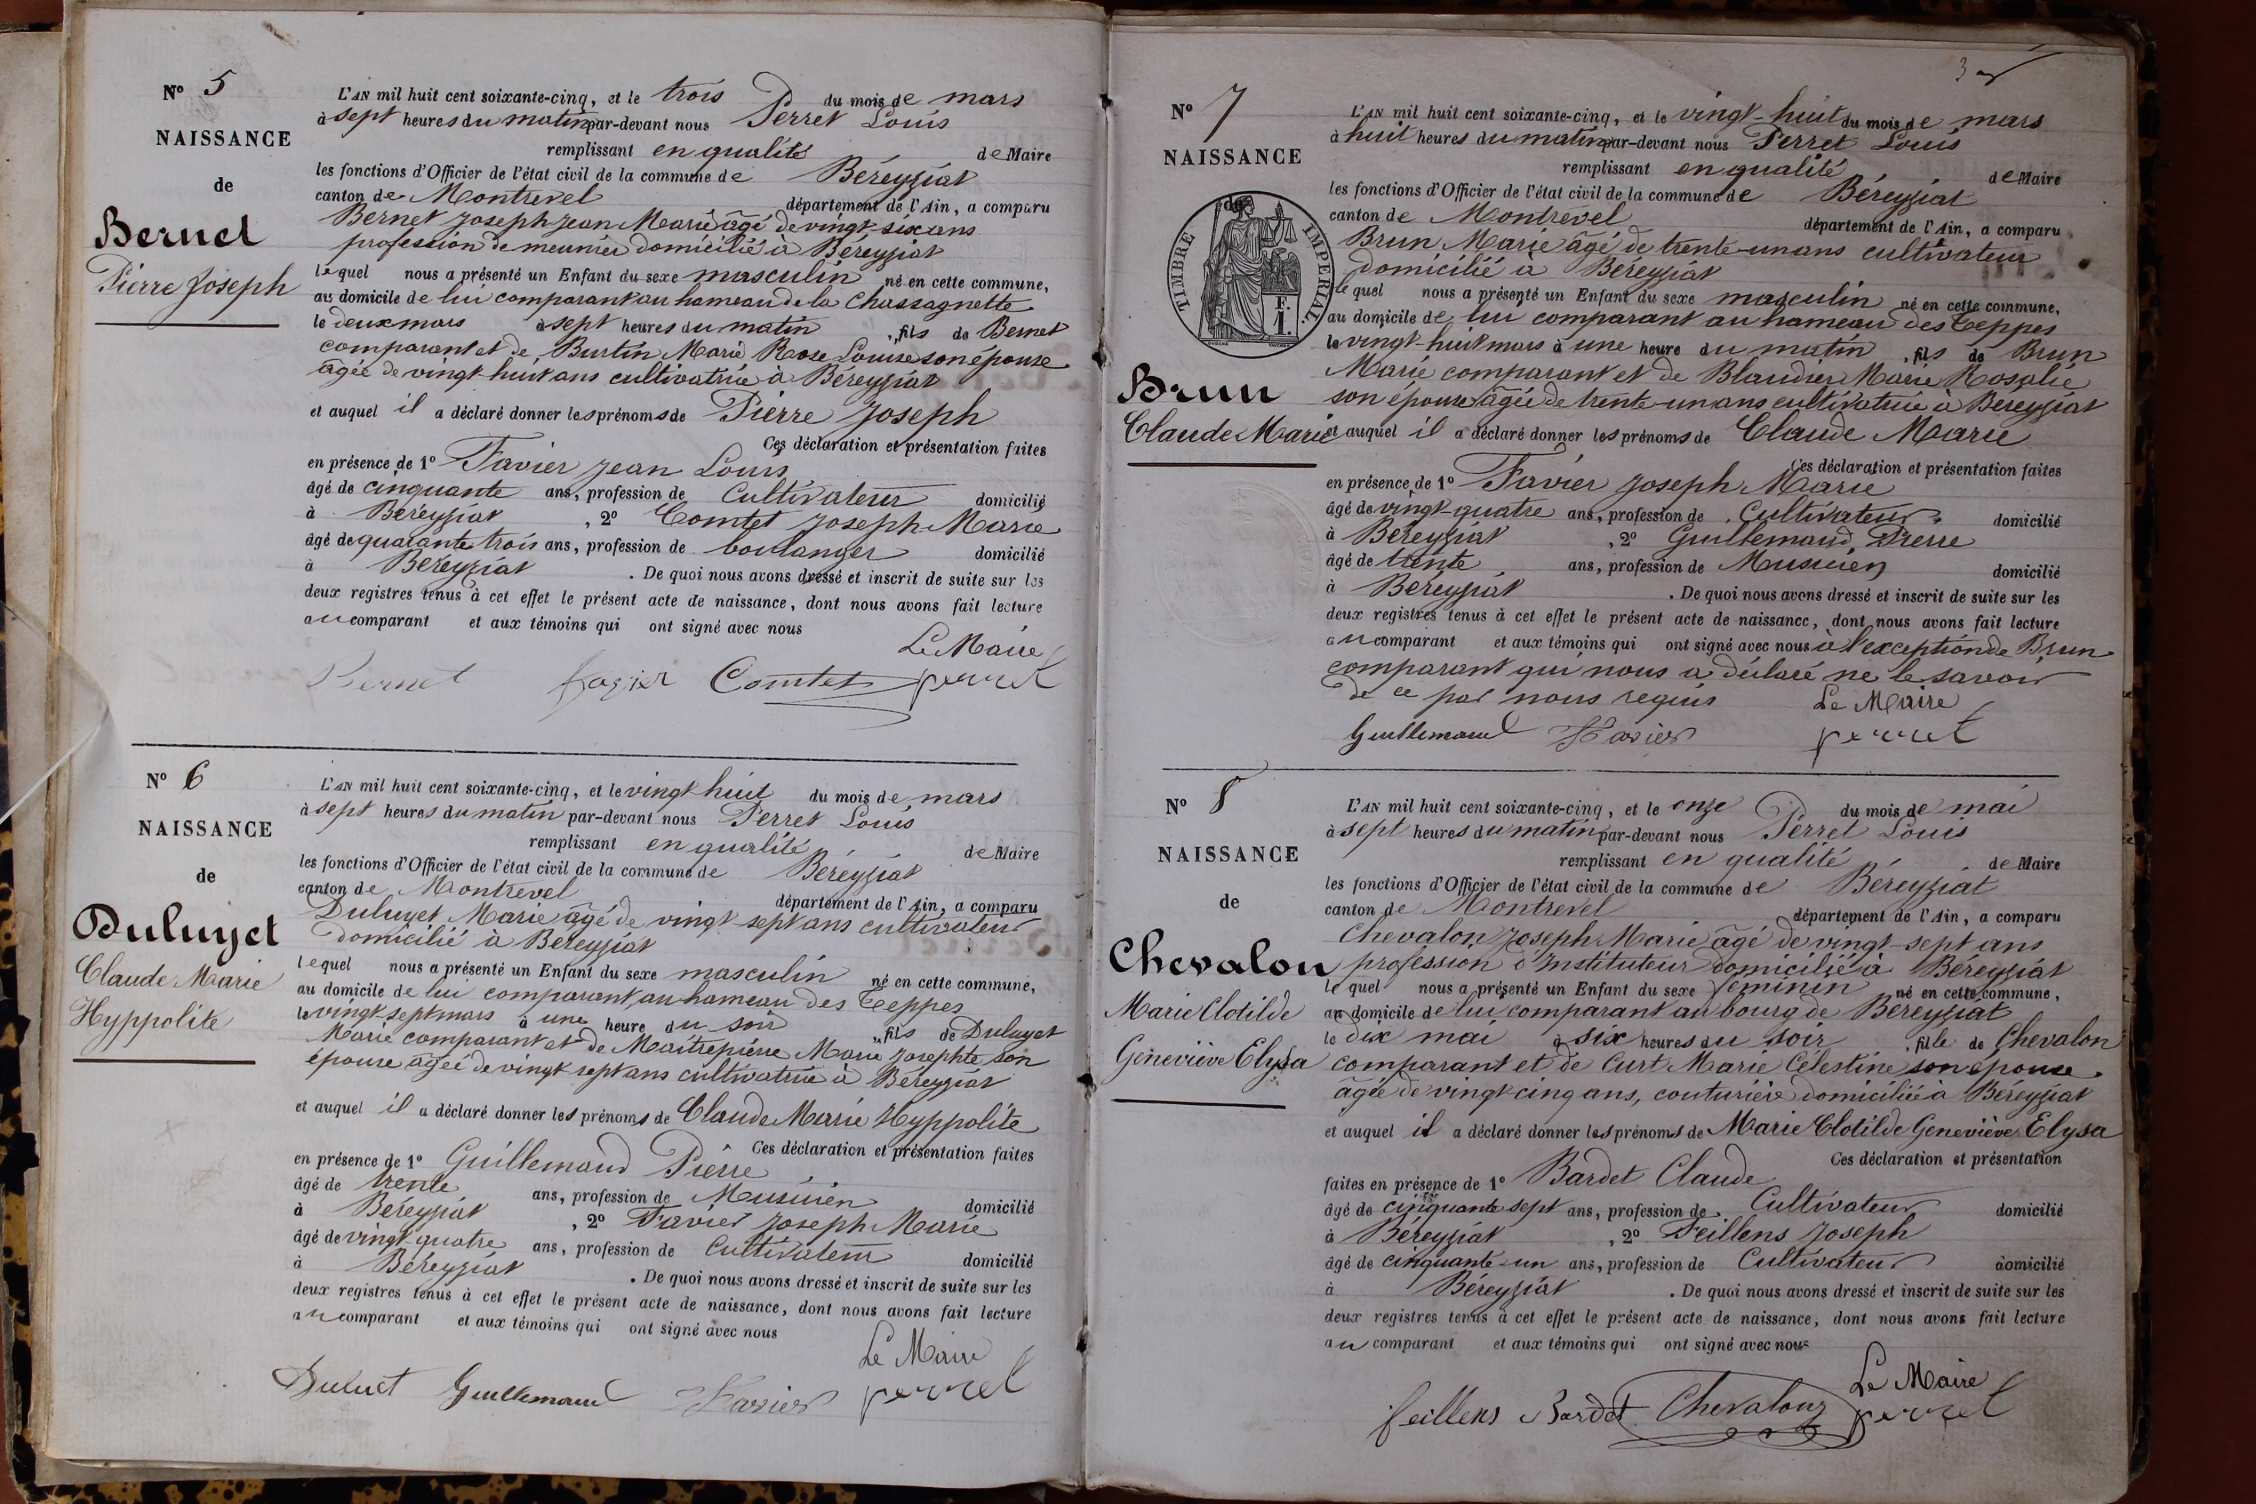 N° 5
NAISSANCE
de
Bernet
Pierre Joseph
L'AN mil huit cent soixante-cinq, et le trois du mois de mars
à sept heures du matin par-devant nous Perret Louis
remplissant en qualité de Maire
les fonctions d'Officier de l'état civil de la commune de Béréyziat
canton de Montrevel département de l'Ain, a comparu
Bernet Joseph Jean Marie âgé de vingt-six ans
profession de meunier domicilié à Béréyziat
lequel nous a présenté un Enfant du sexe masculin né en cette commune,
au domicile de lui comparant au hameau de la Chassagnette
le deux mars à sept heures du matin, fils de Bernet
comparant et de Burtin Marie Rose Louise son épouse
âgée de vingt-huit ans cultivatrice à Béréyziat
et auquel il a déclaré donner les prénoms de Pierre Joseph
Ces déclaration et présentation faites
en présence de 1° Favier Jean Louis
âgé de cinquante ans, profession de Cultivateur domicilié
à Béréyziat, 2° Comtet Joseph Marie
âgé de quarante trois ans, profession de boulanger domicilié
à Béréyziat. De quoi nous avons dressé et inscrit de suite sur les
deux registres tenus à cet effet le présent acte de naissance, dont nous avons fait lecture
au comparant et aux témoins qui ont signé avec nous
Le Maire
Bernet favier Comtet perret
N° 6
NAISSANCE
de
Duluyet
Claude Marie
Hyppolite
L'AN mil huit cent soixante-cinq, et le vingt huit du mois de mars
à sept heures du matin par-devant nous Perret Louis
remplissant en qualité de Maire
les fonctions d'Officier de l'état civil de la commune de Béréyziat
canton de Montrevel département de l'Ain, a comparu
Duluyet Marie âgé de vingt-sept ans cultivateur
domicilié à Béréyziat
lequel nous a présenté un Enfant du sexe masculin né en cette commune,
au domicile de lui comparant, au hameau des Teppes
le vingt-sept mars à une heure du soir, fils de Duluyet
Marie comparant et de Maitrepierre Marie Josephte son
épouse âgée de vingt sept ans cultivatrice à Béréyziat
et auquel il a déclaré donner les prénoms de Claude Marie Hyppolite
Ces déclaration et présentation faites
en présence de 1° Guillemaud Pierre
âgé de trente ans, profession de Musicien domicilié
à Béréyziat, 2° Favier Joseph Marie
âgé de vingt quatre ans, profession de Cultivateur domicilié
à Béréyziat. De quoi nous avons dressé et inscrit de suite sur les
deux registres tenus à cet effet le présent acte de naissance, dont nous avons fait lecture
au comparant et aux témoins qui ont signé avec nous
Le Maire
Duluet Guillemaud Favier perret
3
N° 7
NAISSANCE
de
TIMBRE IMPERIAL
1 F.
Brun
Claude Marie
L'AN mil huit cent soixante-cinq, et le vingt-huit du mois de mars
à huit heures du matin par-devant nous Perret Louis
remplissant en qualité de Maire
les fonctions d'Officier de l'état civil de la commune de Béréyziat
canton de Montrevel département de l'Ain, a comparu
Brun Marie âgé de trente-un ans cultivateur
domicilié à Béréyziat
lequel nous a présenté un Enfant du sexe masculin né en cette commune,
au domicile de lui comparant au hameau des Teppes
le vingt-huit mars à une heure du matin, fils de Brun
Marie comparant et de Blandier Marie Rosalie
son épouse âgée de trente-un ans cultivatrice à Béréyziat
et auquel il a déclaré donner les prénoms de Claude Marie
Ces déclaration et présentation faites
en présence de 1° Favier Joseph Marie
âgé de vingt-quatre ans, profession de Cultivateur domicilié
à Béréyziat, 2° Guillemaud Pierre
âgé de trente ans, profession de Musicien domicilié
à Béréyziat. De quoi nous avons dressé et inscrit de suite sur les
deux registres tenus à cet effet le présent acte de naissance, dont nous avons fait lecture
au comparant et aux témoins qui ont signé avec nous à l'exception de Brun
comparant qui nous a déclaré ne le savoir
de ce par nous requis Le Maire
Guillemaud Favier perret
N° 8
NAISSANCE
de
Chevalon
Marie Clotilde
Geneviève Elysa
L'AN mil huit cent soixante-cinq, et le onze du mois de mai
à sept heures du matin par-devant nous Perret Louis
remplissant en qualité de Maire
les fonctions d'Officier de l'état civil de la commune de Béréyziat
canton de Montrevel département de l'Ain, a comparu
Chevalon Joseph Marie âgé de vingt-sept ans
profession d'Instituteur domicilié à Béréyziat
lequel nous a présenté un Enfant du sexe féminin né en cette commune,
au domicile de lui comparant au bourg de Béréyziat
le dix mai à six heures du soir, fille de Chevalon
comparant et de Curt Marie Célestine son épouse
âgée de vingt-cinq ans, couturière domiciliée à Béréyziat
et auquel il a déclaré donner les prénoms de Marie Clotilde Geneviève Elysa
Ces déclaration et présentation
faites en présence de 1° Bardet Claude
âgé de cinquante sept ans, profession de Cultivateur domicilié
à Béréyziat, 2° Feillens Joseph
âgé de cinquante-un ans, profession de Cultivateur domicilié
à Béréyziat. De quoi nous avons dressé et inscrit de suite sur les
deux registres tenus à cet effet le présent acte de naissance, dont nous avons fait lecture
au comparant et aux témoins qui ont signé avec nous
Le Maire
feillens Bardet Chevalon perret